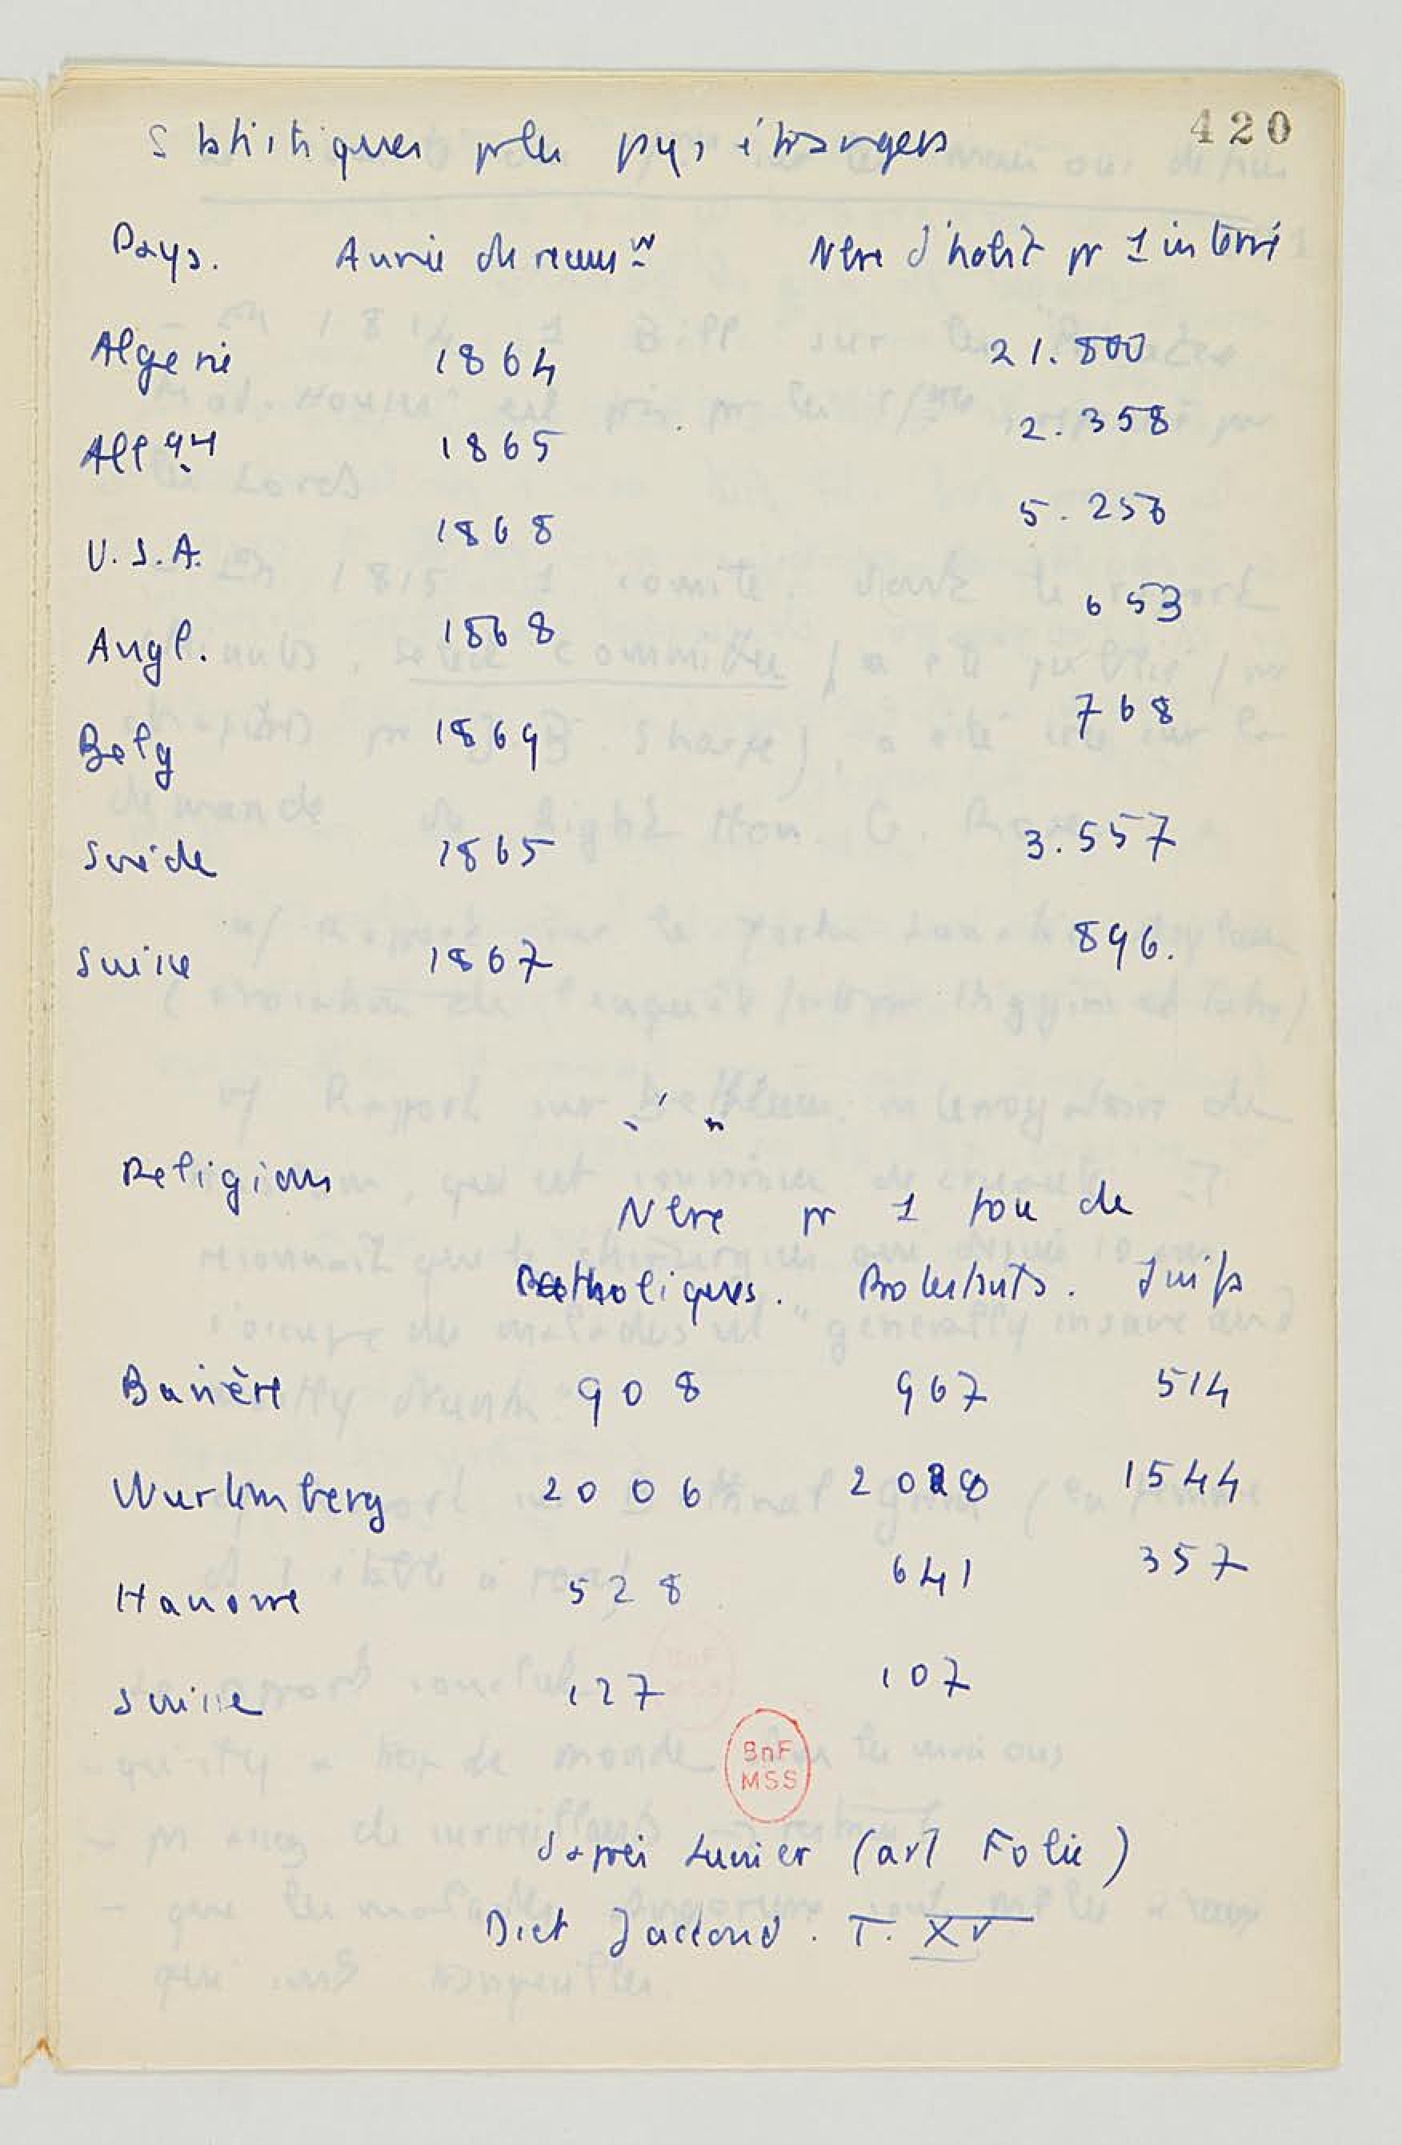 420
Statistiques pr les pays étrangers
Pays. Année de recens^nt Nbre d'habit pr 1 interné
Algerie 1864 21.800
All^gn 1865 2.358
U.S.A. 1868 5.256
Angl. 1868 653
Belg 1869 768
Suède 1865 3.557
Suisse 1867 896.
Religions
Nbre pr 1 fou de
Catholiques. Protestants. Juifs
Bavière 908 967 514
Wurtemberg 2006 2020 1544
Hanovre 528 641 357
Suisse 127 107
BnF
MSS
d'après Lunier (art Folie)
Dict Jaccoud. T. XV